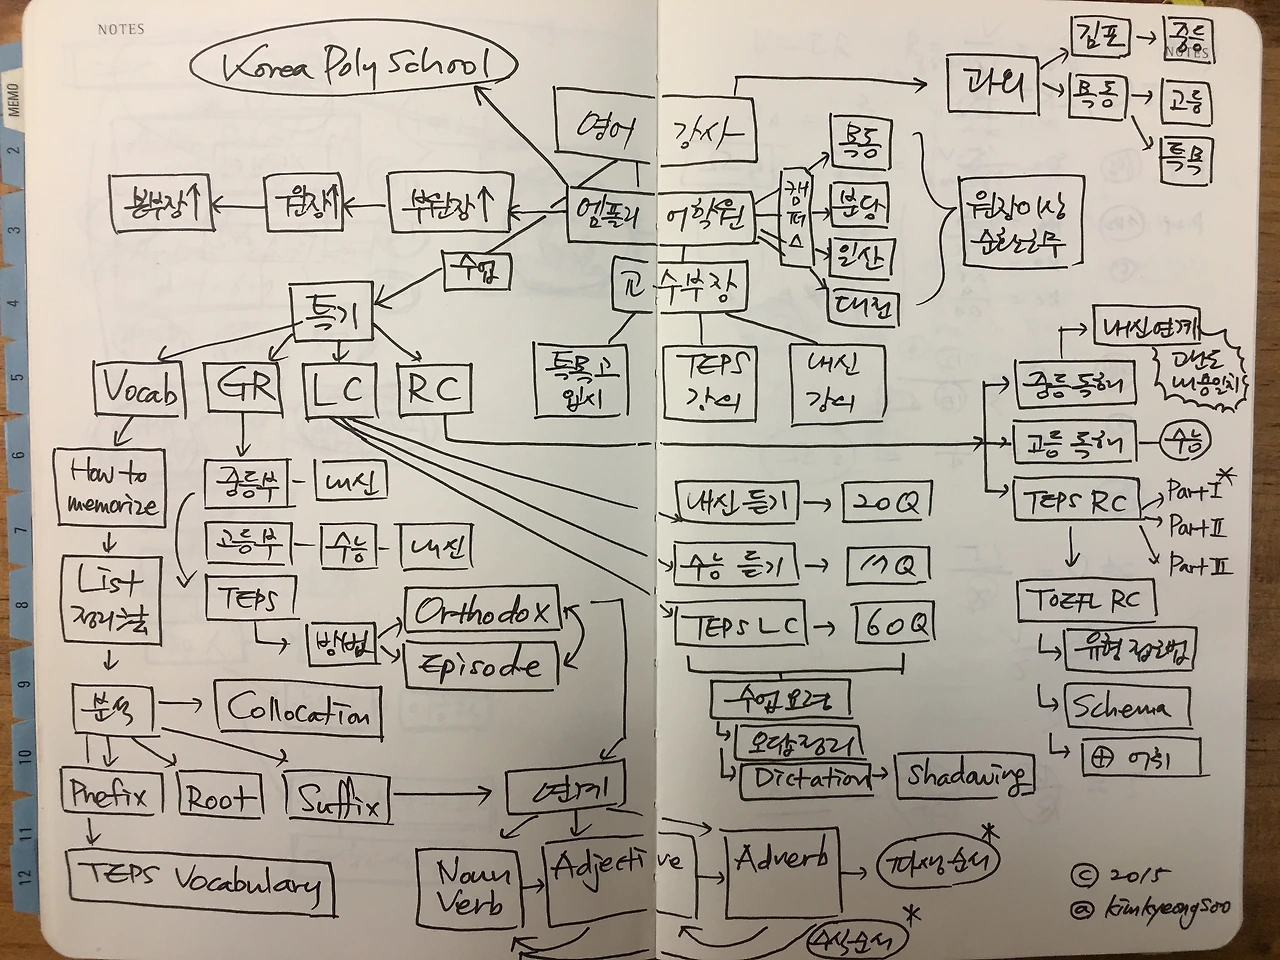 NOTES
NOTES
MEMO
2
3
4
5
6
7
8
9
10
11
12
Korea Poly School
영어 강사
과외
김포
중등
목동
고등
특목
봉부장↑
원장↑
부원장↑
엠폴리 어학원
캠퍼스
목동
분당
일산
대전
원장이상
순환근무
수업
교수부장
특기
특목고
입시
TEPS
강의
내신
강의
Vocab
GR
LC
RC
내신연계
난이도
내용일치
중등독해
고등독해
수능
TEPS RC
Part I *
Part II
Part III
How to
memorize
중등부 - 내신
고등부 - 수능 - 내신
TEPS
방법
Orthodox
Episode
List
정리한
내신듣기
20Q
수능 듣기
17Q
TEPS LC
60Q
TOEFL RC
유형접근법
Schema
⊕ 어휘
분석
Collocation
수업요령
오답정리
Dictation
Shadowing
Prefix
Root
Suffix
연계
TEPS Vocabulary
Noun
Verb
Adjective
Adverb
파생순서 *
수식순서 *
© 2015
@ kimkyeongsoo